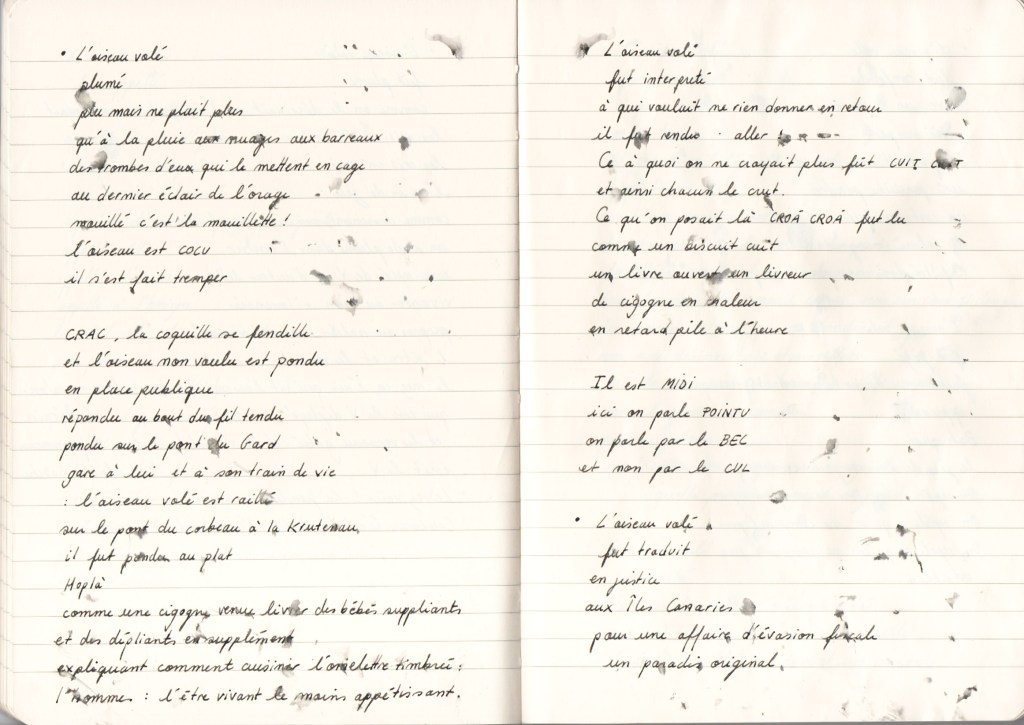 • L'oiseau volé
plumé
plu mais ne plait plus
qu'à la pluie aux nuages aux barreaux
des trombes d'eux qui le mettent en cage
au dernier éclair de l'orage
mouillé c'est la mouillette !
l'oiseau est COCU
il s'est fait tremper
CRAC, la coquille se fendille
et l'oiseau non voulu est pondu
en place publique
répandu au bout du fil tendu
pondu sur le pont du Gard
gare à lui et à son train de vie
: l'oiseau volé est raillé
sur le pont du corbeau à la Krutenau
il fut pondu au plat
Hoplà
comme une cigogne venue livrer des bébés suppliants
et des dépliants en supplément
expliquant comment cuisiner l'omelette timbrée :
l'hommes : l'être vivant le moins appétissant.
• L'oiseau volé
fut interpreté
à qui voulait ne rien donner en retour
il fut rendu aller
Ce à quoi on ne croyait plus fût CUIT CUIT
et ainsi chacun le crut.
Ce qu'on posait là CROÂ CROÂ fut lu
comme un biscuit cuit
un livre ouvert un livreur
de cigogne en chaleur
en retard pile à l'heure
Il est MIDI
ici on parle POINTU
on parle par le BEC
et non par le CUL
• L'oiseau volé
fut traduit
en justice
aux Îles Canaries
pour une affaire d'évasion fiscale
un paradis original.